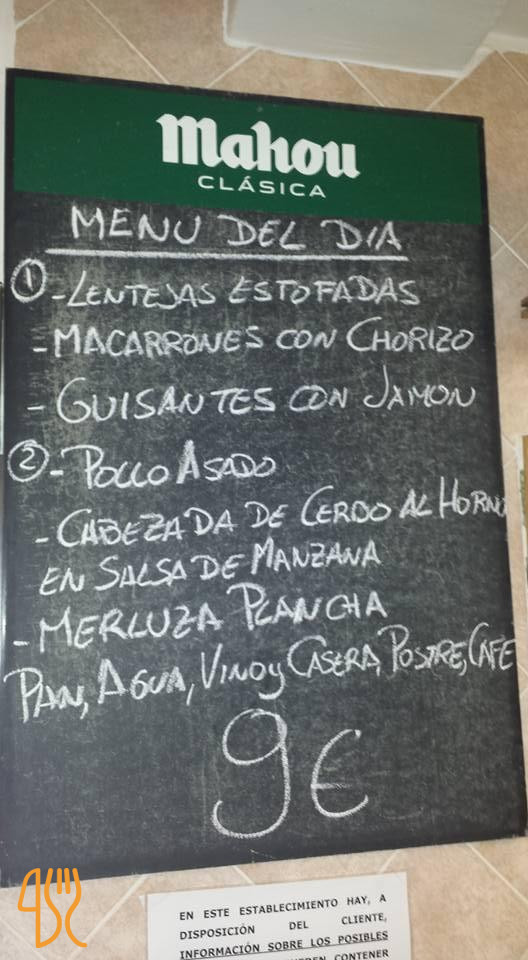 Mahou
CLÁSICA
MENU DEL DIA
① -LENTEJAS ESTOFADAS
-MACARRONES CON CHORIZO
- GUISANTES CON JAMON
② - POLLO ASADO
- CABEZADA DE CERDO AL HORNO
EN SALSA DE MANZANA
- MERLUZA PLANCHA
PAN, AGUA, VINO y CASERA, POSTRE, CAFE
9€
EN ESTE ESTABLECIMIENTO HAY, A
DISPOSICIÓN DEL CLIENTE,
INFORMACIÓN SOBRE LOS POSIBLES
CONTENER